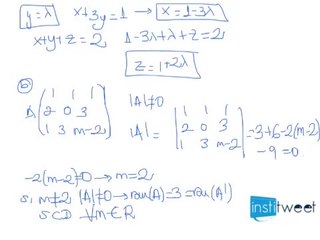 y=λ x+3y=1 → x=1-3λ
x+y+z=2 1-3λ+λ+z=2
z=1+2λ
b)
1 1 1 |A|≠0 1 1 1
A 2 0 3 |A|= 2 0 3 =3+6-2(m-2)
1 3 m-2 1 3 m-2 -9=0
-2(m-2)≠0 → m=2
Si m≠2 |A|≠0 → ran(A)=3=ran(A')
SCD ∀m∈R
institweet